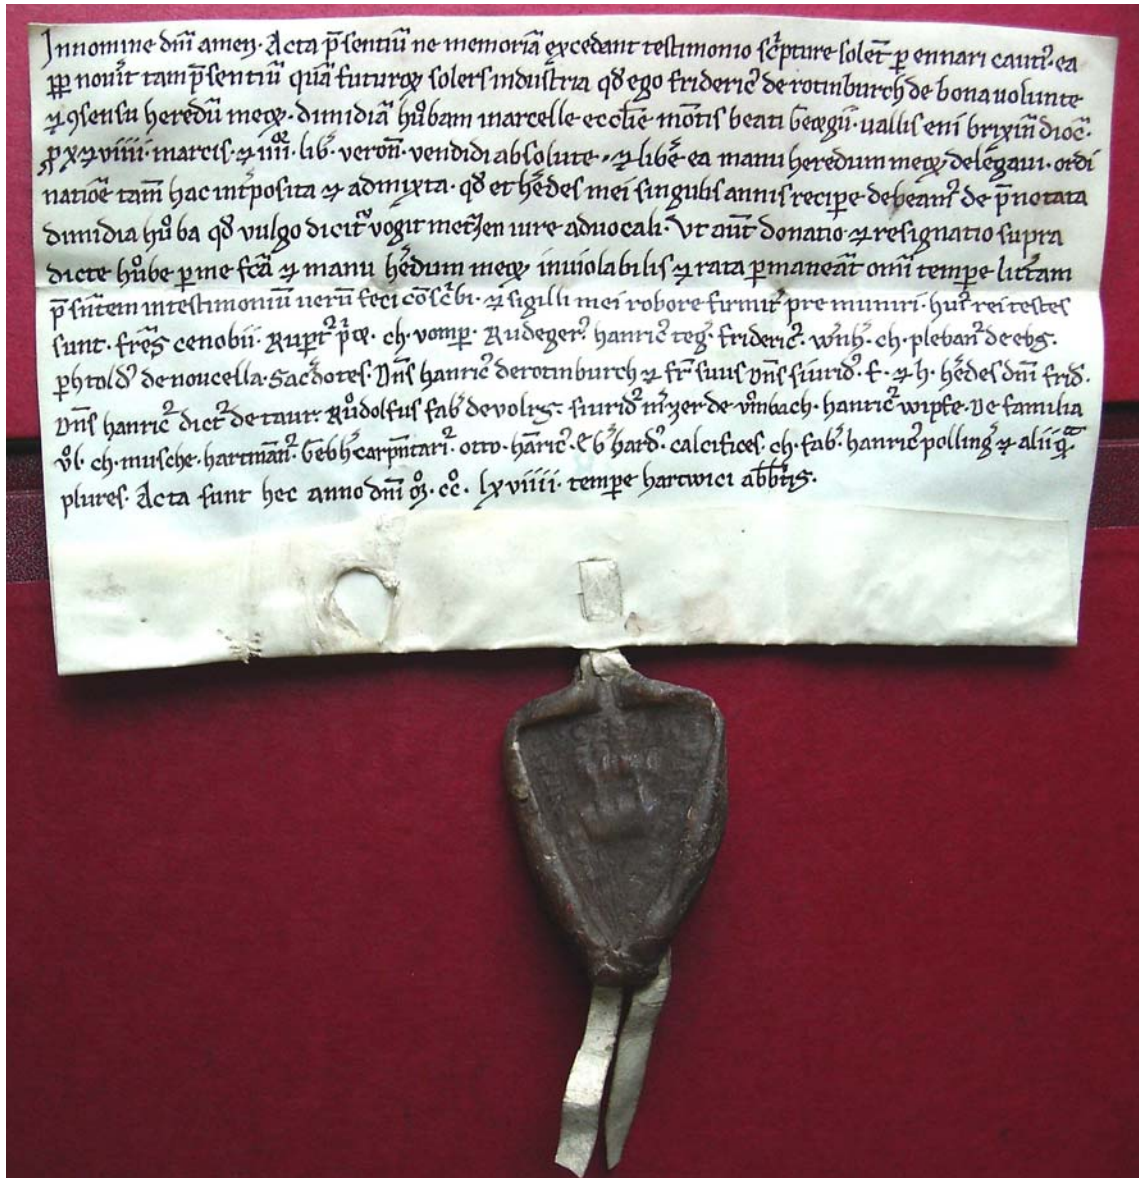 Jn nomine dnĩ amen · Acta p̄sentiũ ne memoriã excedant testimonio sc̃pture solet̃ perennari cauti · ea
nouit tam p̄sentiũ quã futuroꝝ solers industria qđ ego frideric᷒ de rotinburch de bona uolunte
⁊ ꝯsensu heredũ meoꝝ · dimidiã hůbam marcelle ecctie mõtis beati uallis eni brixiñ dioc̃ ·
x ⁊ viiii · marcis · ⁊ lib᷒ · veroñ · vendidi absolute · ⁊ lib̃e ea manu heredum meoꝝ delegaui · ordi
natiõe tam̃ hac int̃posita ⁊ admixta · qđ et h̃edes mei singulis annis recipe debeant᷒ de p̄notata
dimidia hůba qđ vulgo dicit᷒ vogit metzen iure aduocali · Vt aut̃ donatio ⁊ resignatio supra
dicte hůbe ꝑ me fc̃ã ⁊ manu h̃edum meoꝝ inuiolabilis ⁊ rata ꝑmaneãt omĩ tempe litt̃am
p̄sñtem in testimoniũ uerũ feci cõsc̃bi · ⁊ sigilli mei robore firmit᷒ pre muniri · hui᷒ rei testes
sunt · fr̃es cenobii · Rupt᷒ · ch · vomp · Rudeger᷒ · hanric᷒ teg᷒ · frideric᷒ · ch · pleban᷒ de ebs ·
ꝑhtold᷒ de noucella · Sac̃dotes · Dñs hanric᷒ de rotinburch ⁊ fr̃ suus dñs siurid᷒ · f · ⁊ · h · h̃edes dñi frid᷒ ·
Dñs hanric᷒ dict᷒ de taur · Růdolfus fab᷒ de volrs · siurid᷒ de vombach · hanric᷒ wipfe · De familia
vl · ch · musche · hartmãn᷒ · Gebh᷒ carpñtari᷒ · otto · hãric᷒ · calcifices · ch · fab᷒ · hanric᷒ polling᷒ ⁊ alii
plures · Acta sunt hec anno dnĩ · cc̊ · lxviiii · tempe hartwici abbtis ·